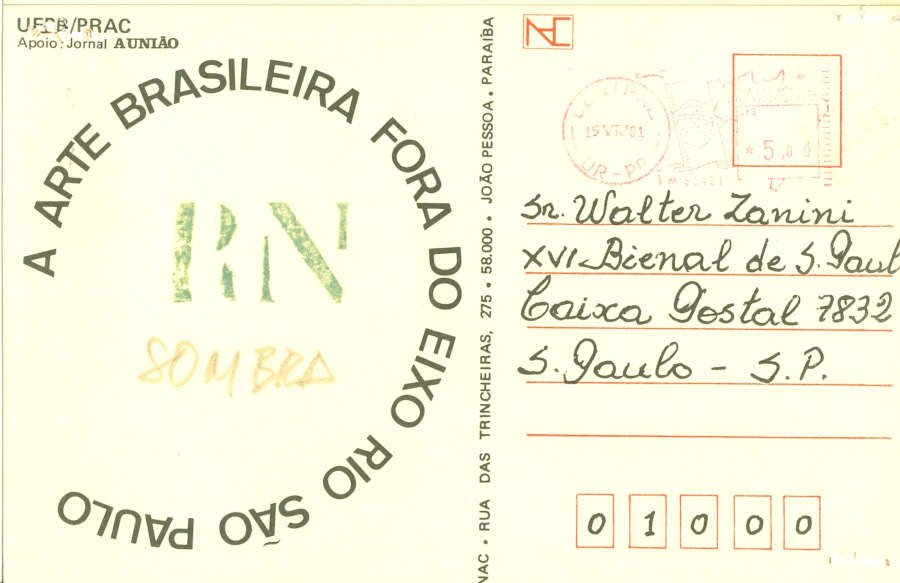 UFPB/PRAC
Apoio: Jornal A UNIÃO
A ARTE BRASILEIRA FORA DO EIXO RIO SÃO PAULO
RN
SOMBRA
NAC • RUA DAS TRINCHEIRAS, 275 • 58.000 • JOÃO PESSOA • PARAÍBA
NAC
UR-PP
* 5,00
Sr. Walter Zanini
XVI Bienal de S. Paul
Caixa Postal 7832
S. Paulo - S.P.
0 1 0 0 0